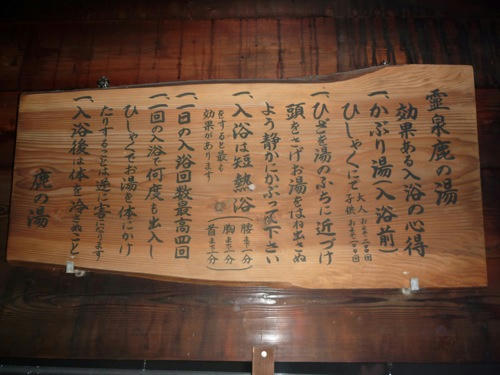 霊泉鹿の湯
効果ある入浴の心得
一、かぶり湯(入浴前)
ひしゃくにて
大人 およそ二百回
子供 およそ百回
一、ひざを湯のふちに近づけ
頭をさげお湯をはね出さぬ
よう静かにかぶって下さい
一、入浴は短熱浴
(腰まで二分
胸まで二分
首まで一分)
をすると最も
効果があります
一、一日の入浴回数最高四回
一、一回の入浴で何度も出入し
ひしゃくでお湯を体にかけ
たりすることは逆に害になります
一、入浴後は体を冷さぬこと
鹿の湯